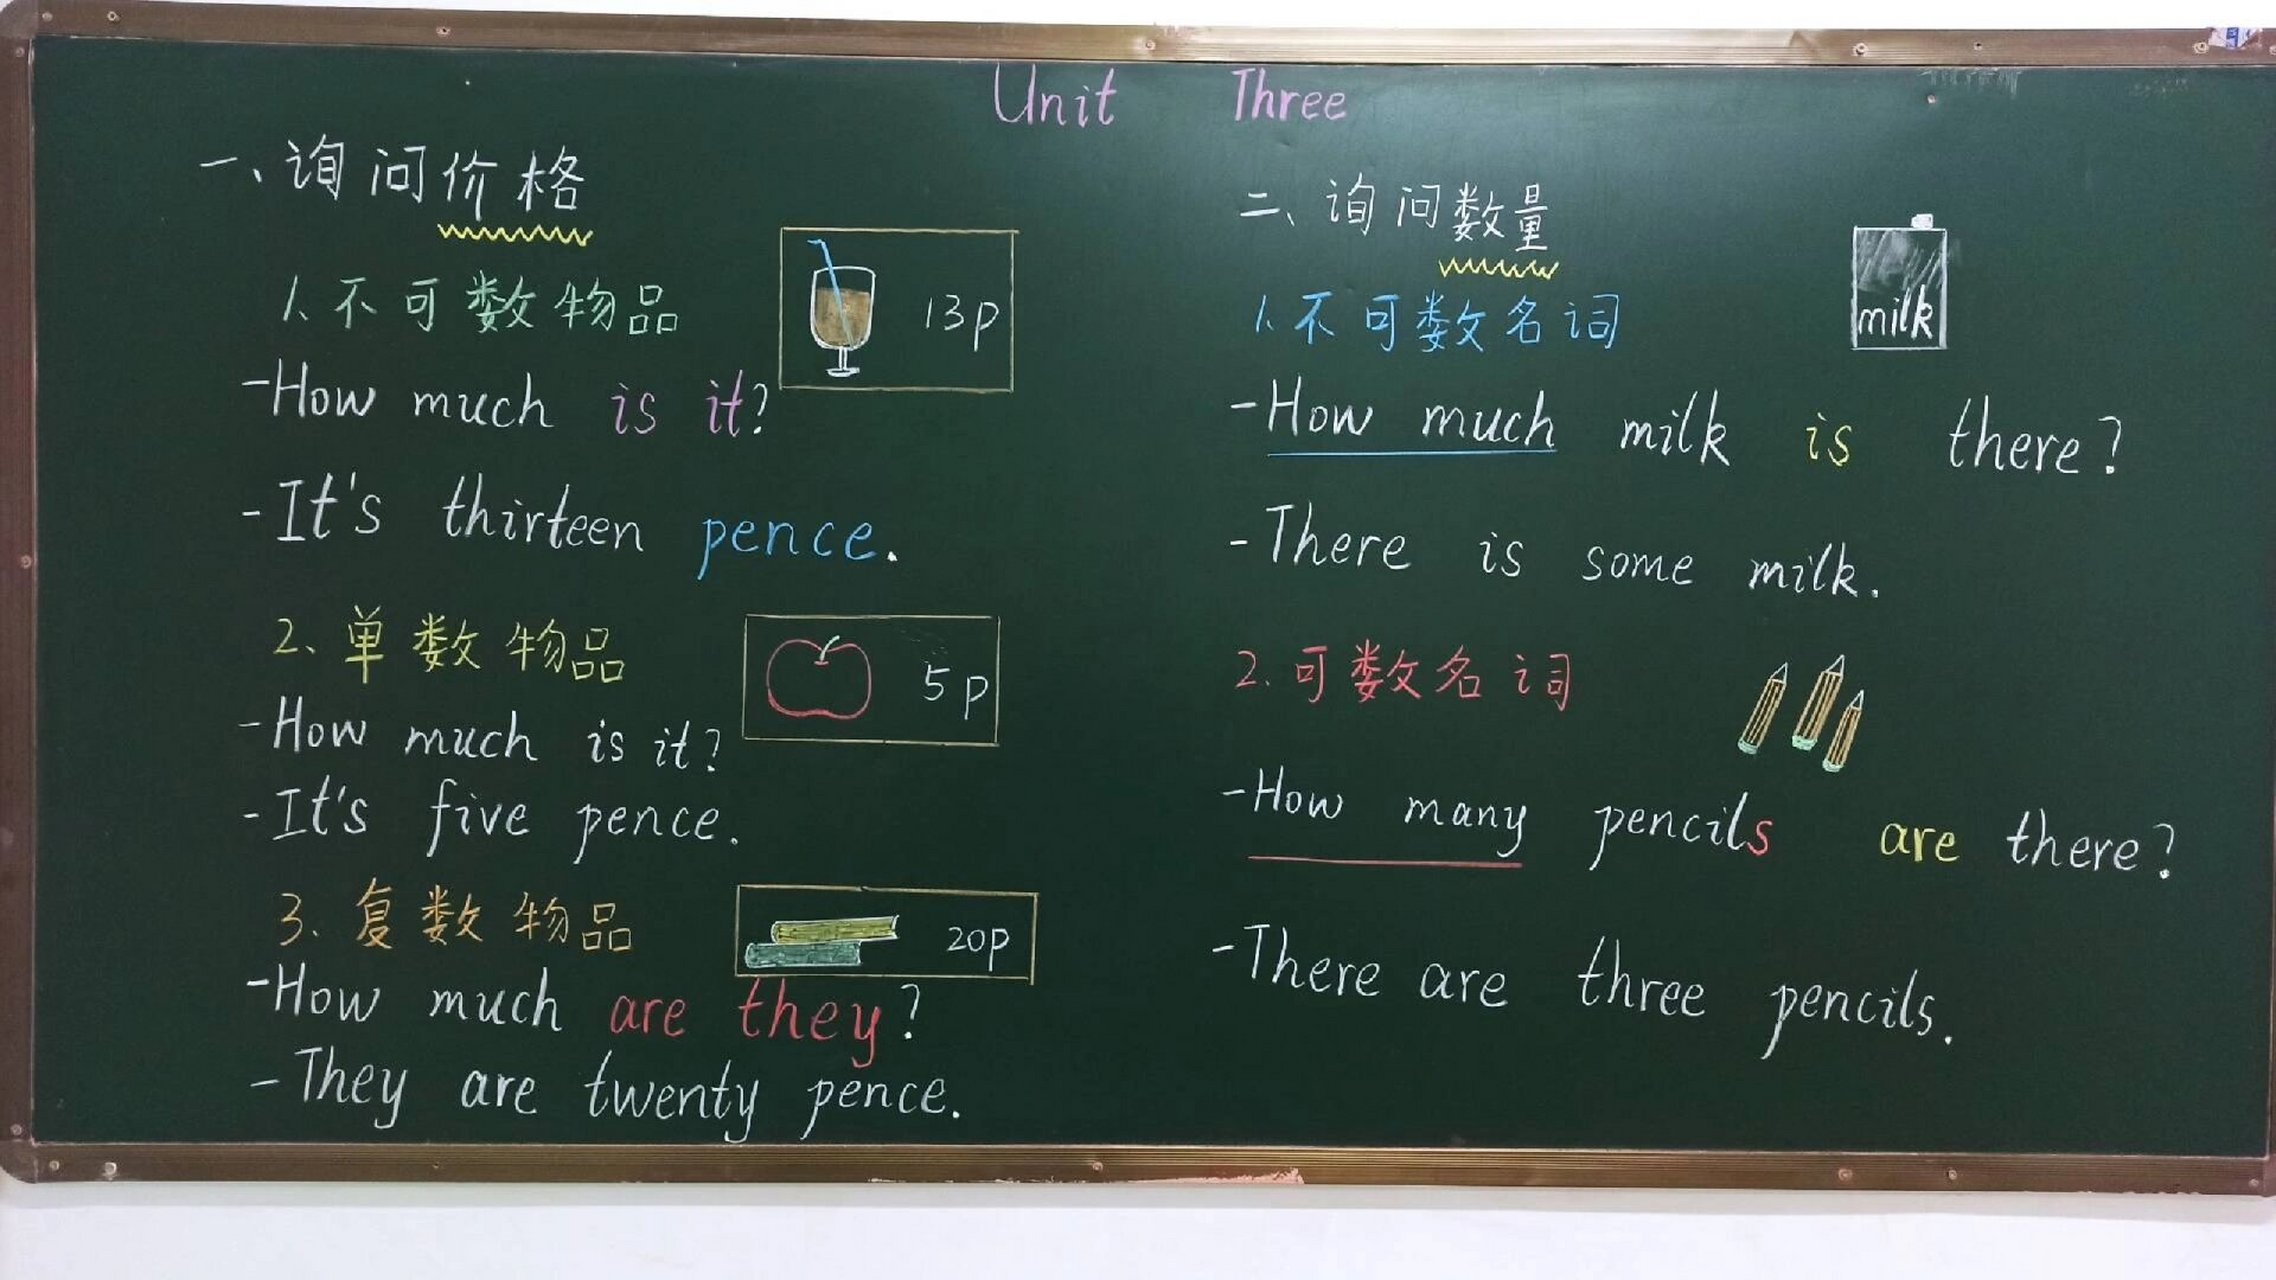 Unit Three
一、询问价格
1.不可数物品
13p
-How much is it?
-It's thirteen pence.
2、单数物品
5p
-How much is it?
-It's five pence.
3、复数物品
20p
-How much are they?
-They are twenty pence.
二、询问数量
1.不可数名词
milk
-How much milk is there?
-There is some milk.
2.可数名词
-How many pencils are there?
-There are three pencils.